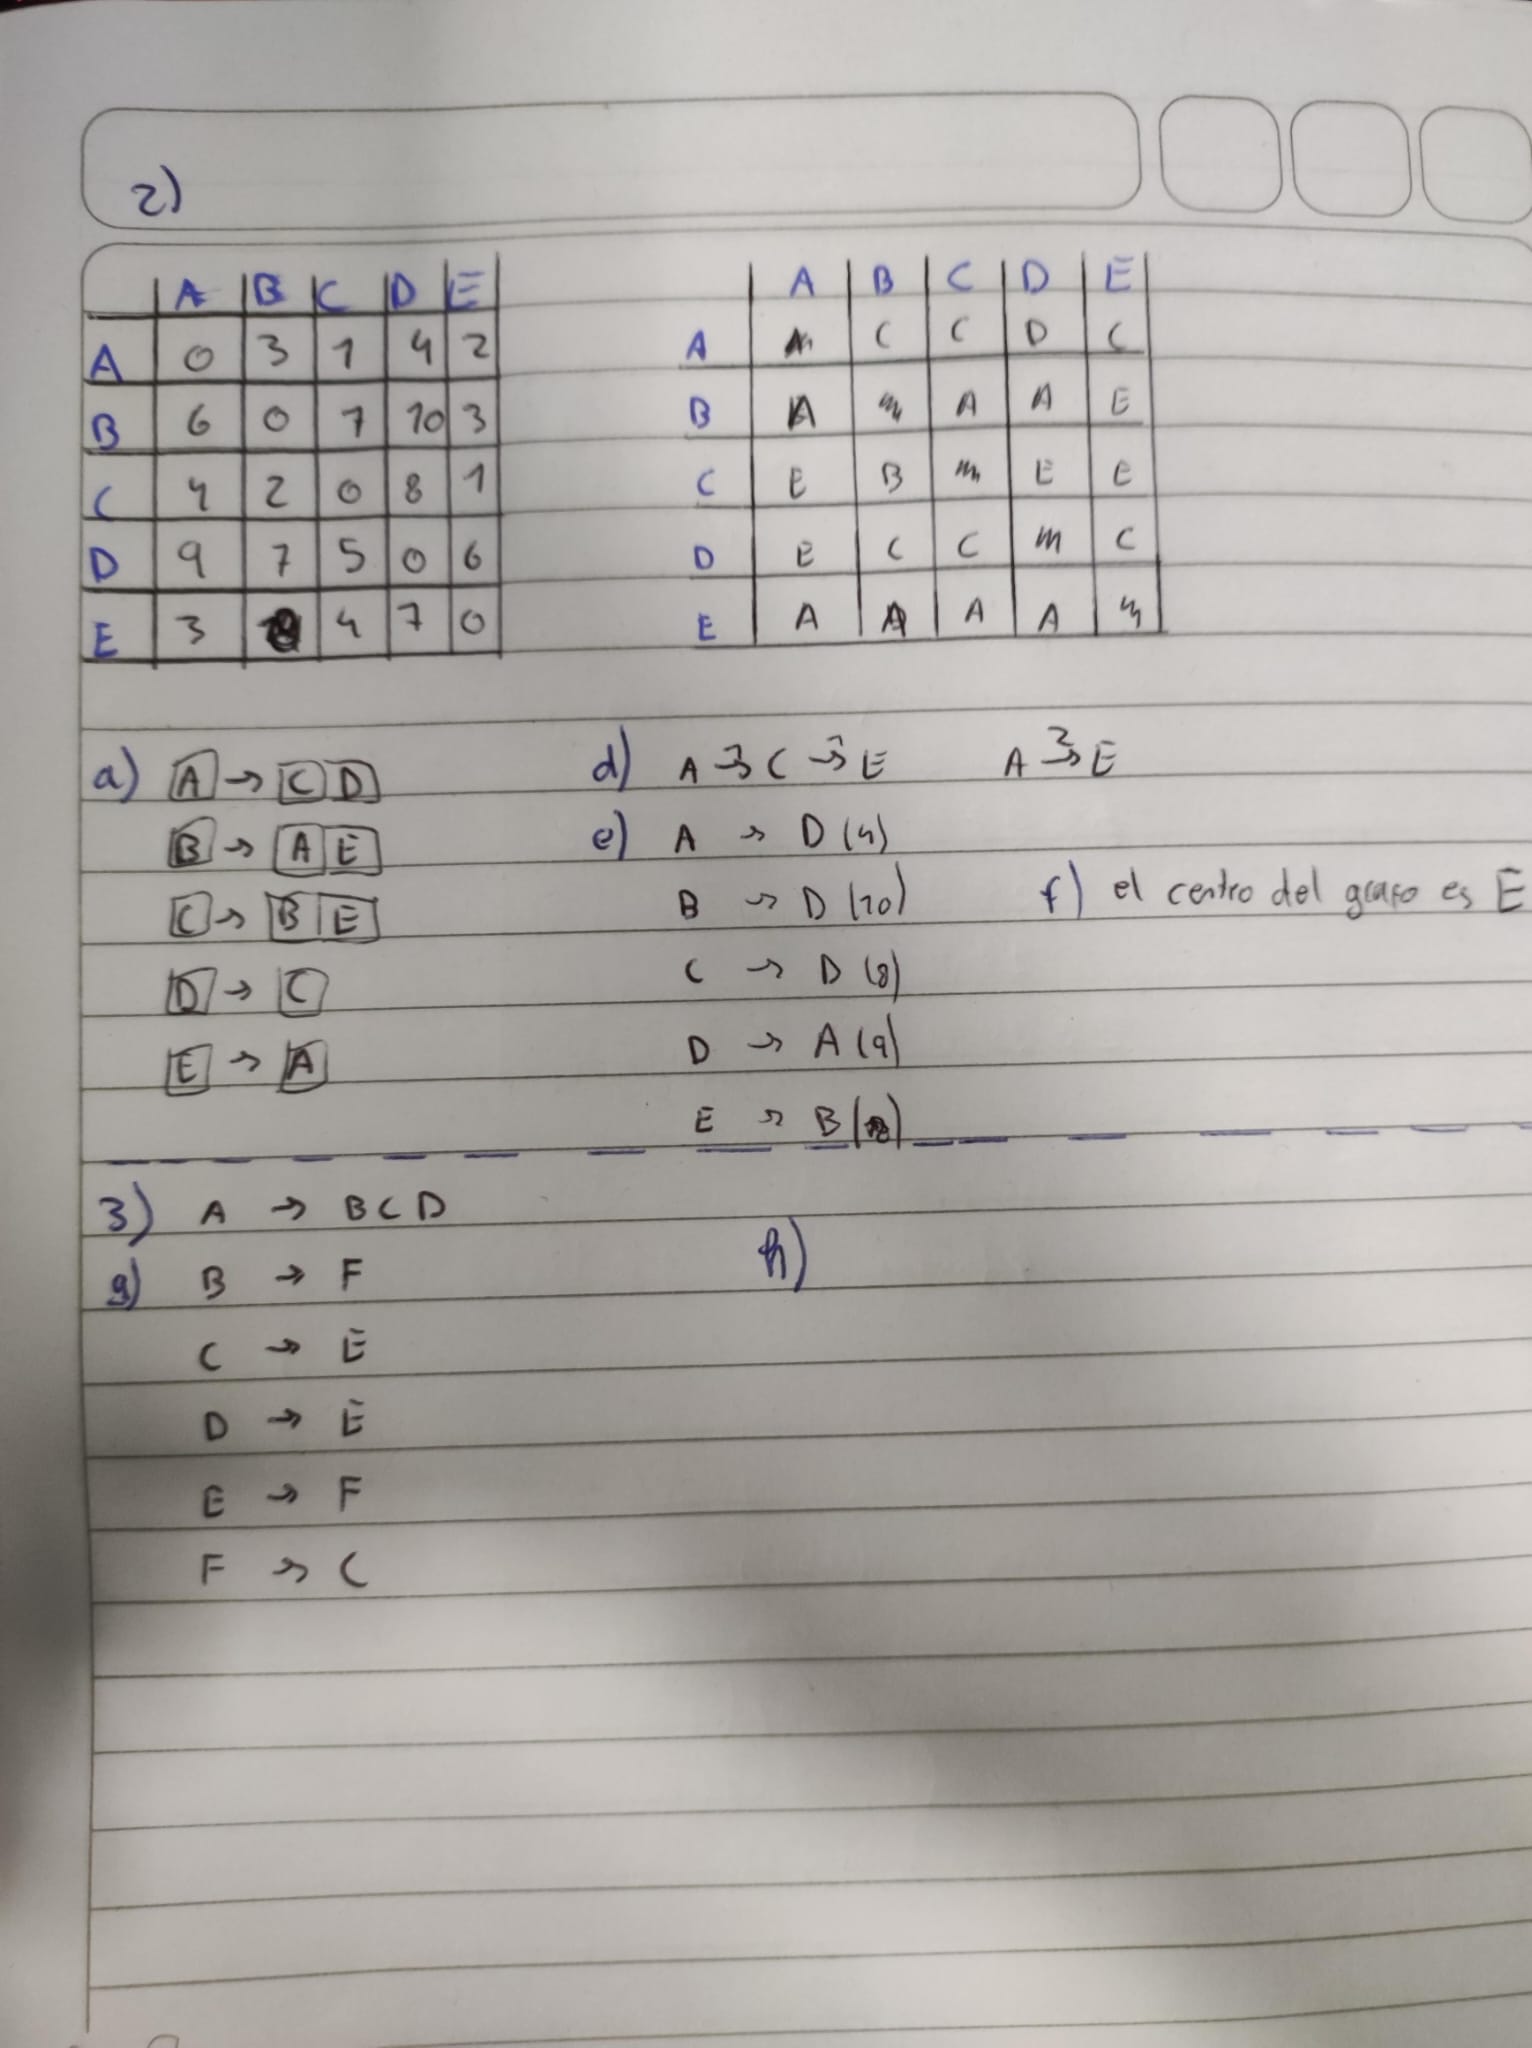 2)
A B C D E
A 0 3 1 4 2
B 6 0 7 10 3
C 4 2 0 8 1
D 9 7 5 0 6
E 3 4 7 0
A B C D E
A C C D C
B A m A A E
C E B m E E
D E C C m C
E A A A A m
a) A → C D
B → A E
C → B E
D → C
E → A
d) A →1 C →1 E A →2 E
e) A → D (4)
B → D (10)
C → D (8)
D → A (9)
E → B
f) el centro del grafo es E
3) A → B C D
g) B → F
C → E
D → E
E → F
F → C
h)